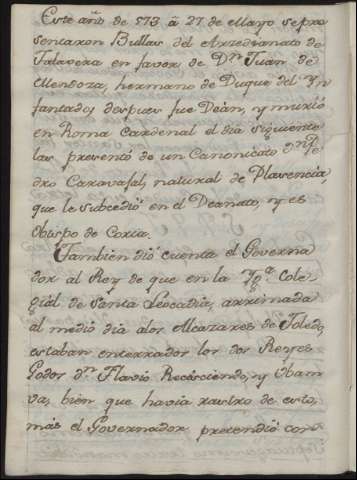 Este año de 573 á 27 de Mayo se pre
sentaron Bullas del Arzedianato de
Talavera en favor de Dn. Juan de
Mendoza, hermano de Duque del Yn
fantado; despues fue Deàn, y muriò
en Roma Cardenal el dia siguiente
las presentò de un Canonicato dn. Pe
dro Caravajal, natural de Plasencia,
que le subcediò en el Deanato, y es
Obispo de Coria.
Tambien diò cuenta el Governa
dor al Rey de que en la Ygª. Cole
gial de Santa Leocadia, arrimada
al medio dia alos Alcazares de Toledo,
estaban enterrados los dos Reyes
Godos dn. Flavio Recisciendo, y Vbam
va; bien que havia rastro de esto,
mas el Governador pretendiò con